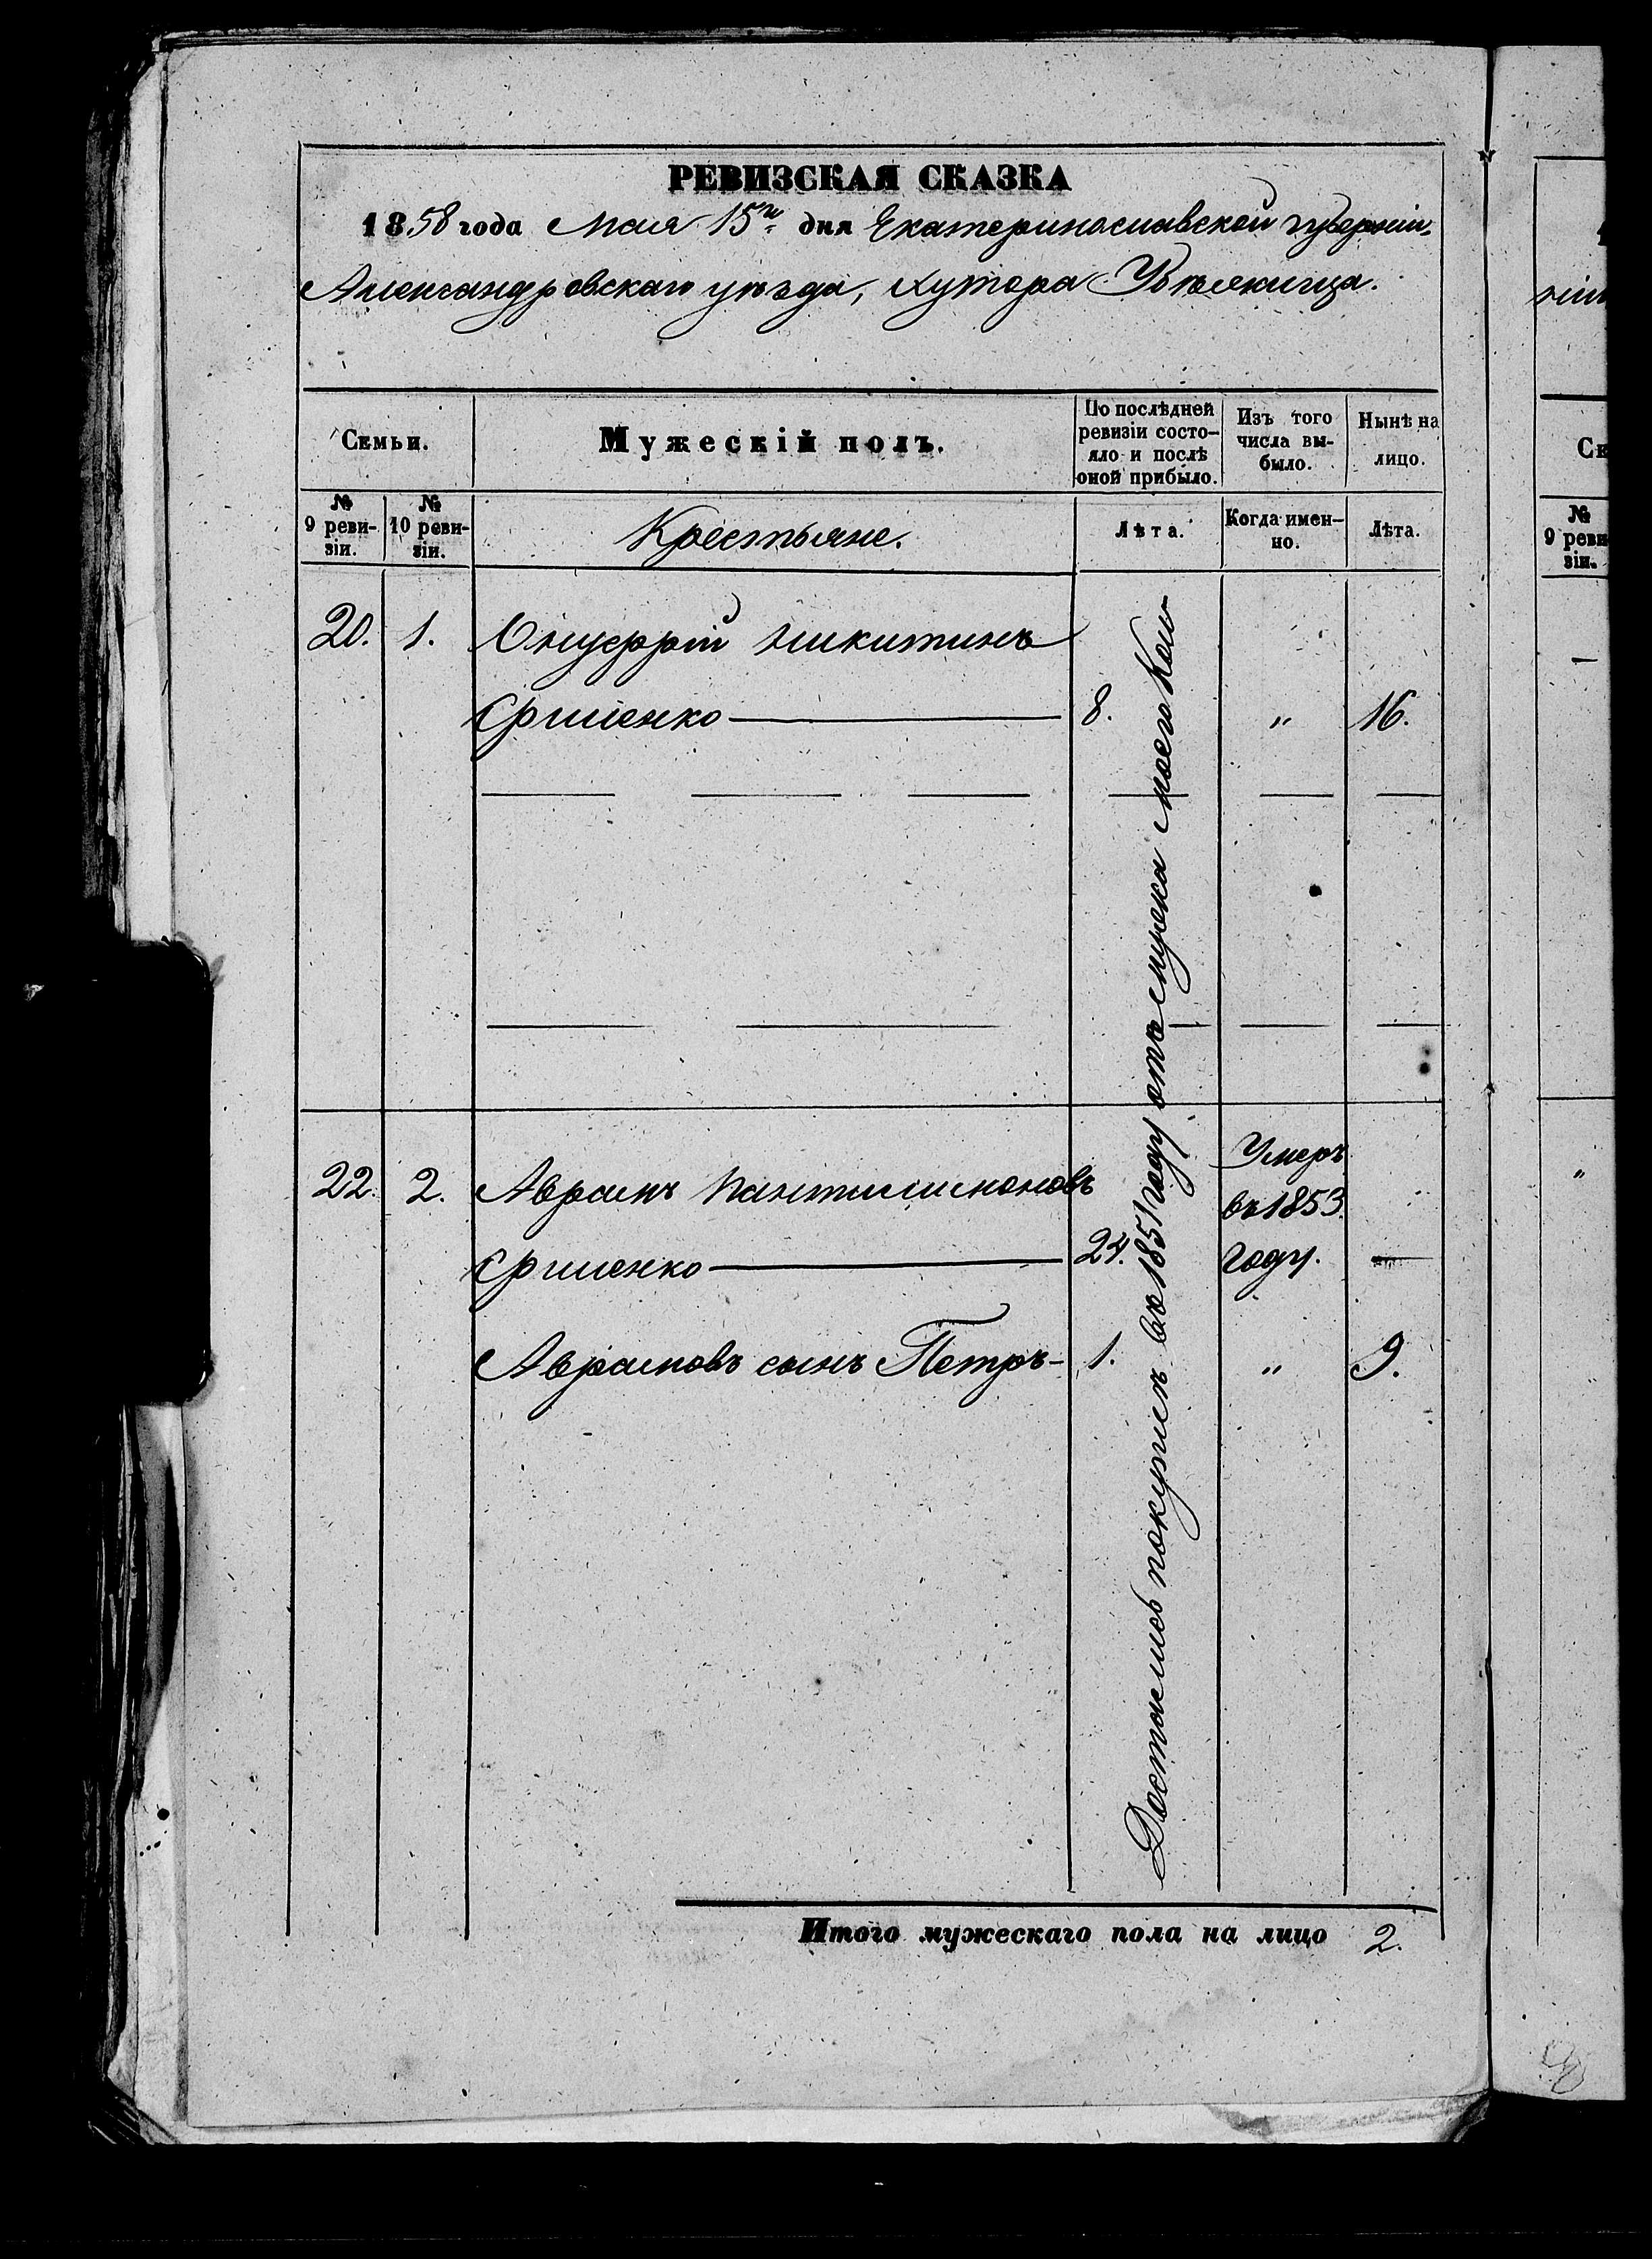 РЕВИЗСКАЯ СКАЗКА
1858 года Мая 15го дня Екатеринославской губерніи,
Александровскаго уѣзда, хутора
Семьи.
Мужескій полъ.
По послѣдней ревизіи состо-
яло и послѣ оной прибыло.
Изъ того числа вы-
было.
Нынѣ на лицо.
№ 9 реви-
зіи.
№ 10 реви-
зіи.
Крестьяне.
Лѣта.
Когда имен-
но.
Лѣта.
20. 1. Онуфрій Никитинъ
8. " 16.
22. 2. Аврамъ Пантилимоновъ
24. Умеръ въ 1853 году. —
Аврамовъ сынъ Петръ - 1. " 9.
Достались покупкою въ 1851 году отъ мужа моего
Итого мужескаго пола на лицо 2.
ніи
Се
№
9 реви
зіи.
"